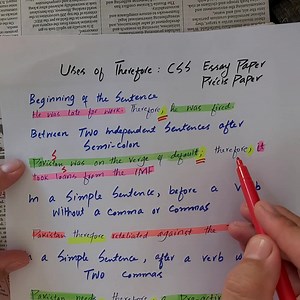 Uses of Therefore: CSS Essay Paper
Precis Paper
Beginning of the Sentence
He was late for work. Therefore, he was fired.
Between TWO Independent Sentences after
Semi-colon
S
Pakistan was on the verge of default; therefore, it
S
took loans from the IMF
In a Simple Sentence, before a Verb
Without a Comma or Commas
Pakistan therefore retaliated against the
In a Simple Sentence, after a verb w
TWO Commas
Pakistan needs therefore a Pro-active